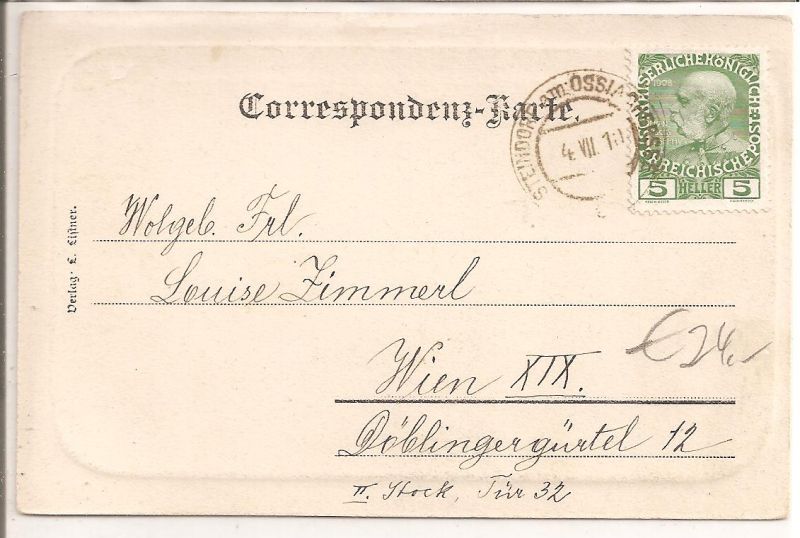 Correspondenz-Karte.
STEINDORF am OSSIACHERSEE
4. VII.
KAISERLICHE KÖNIGLICHE ÖSTERREICHISCHE POST
1908
5 HELLER 5
Wolgeb. Frl.
Louise Zimmerl
Wien XIX.
Döblingergürtel 12
II. Stock, Tür 32
€ 24.-
Verlag L. Listner.